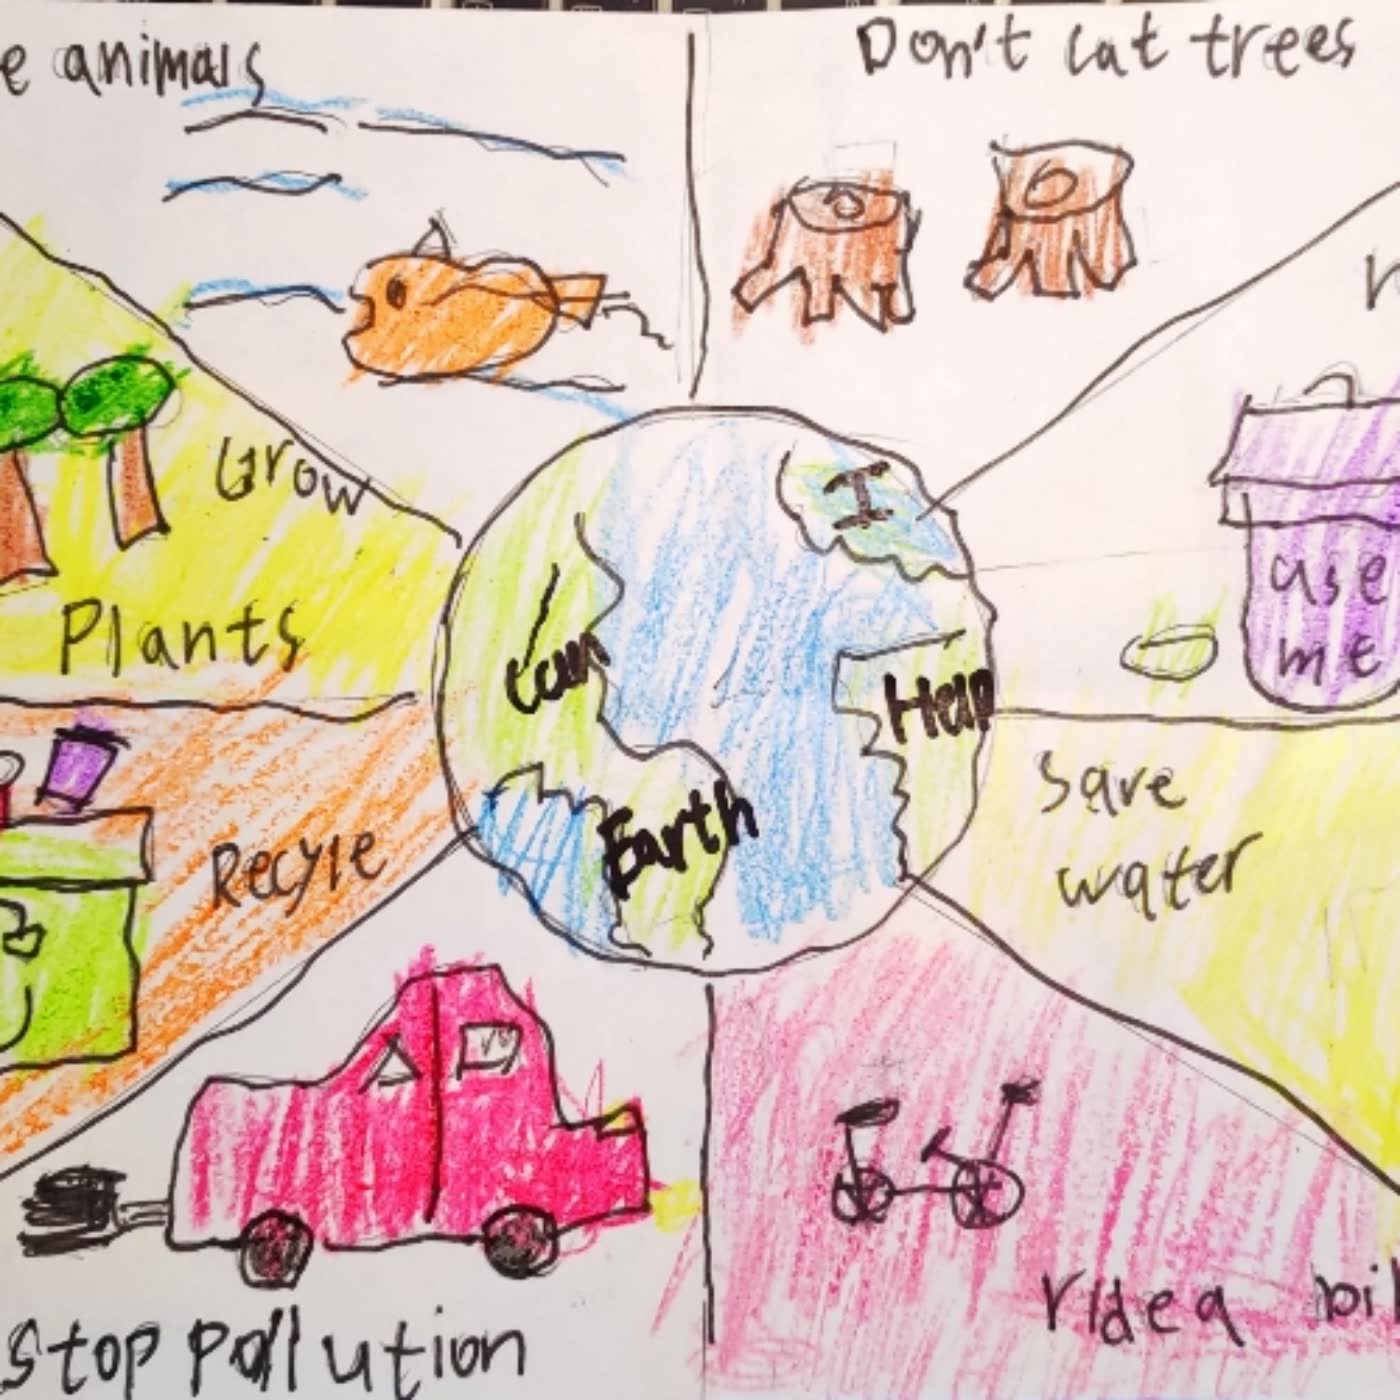 e animals
Don't cut trees
Grow
Plants
use
me
I
Can
Help
Earth
Save
water
Recyle
Stop pollution
ride a bi